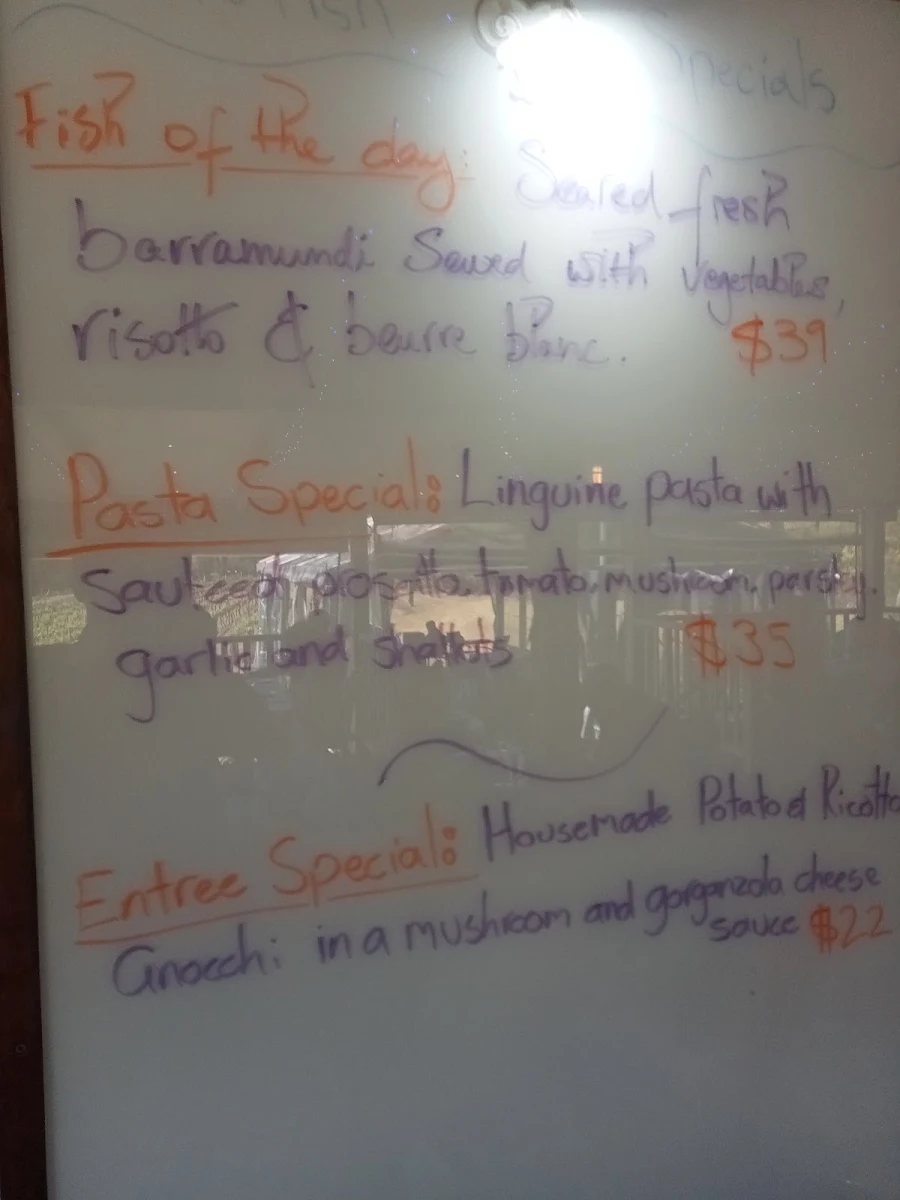 Specials
Fish of the day: Seared fresh
barramundi Served with vegetables,
risotto & beurre blanc. $39
Pasta Special: Linguine pasta with
Sauteed prosciutto, tomato, mushroom, parsley,
garlic and shallots $35
Entree Special: Housemade Potato & Ricotta
Gnocchi in a mushroom and gorganzola cheese
sauce $22